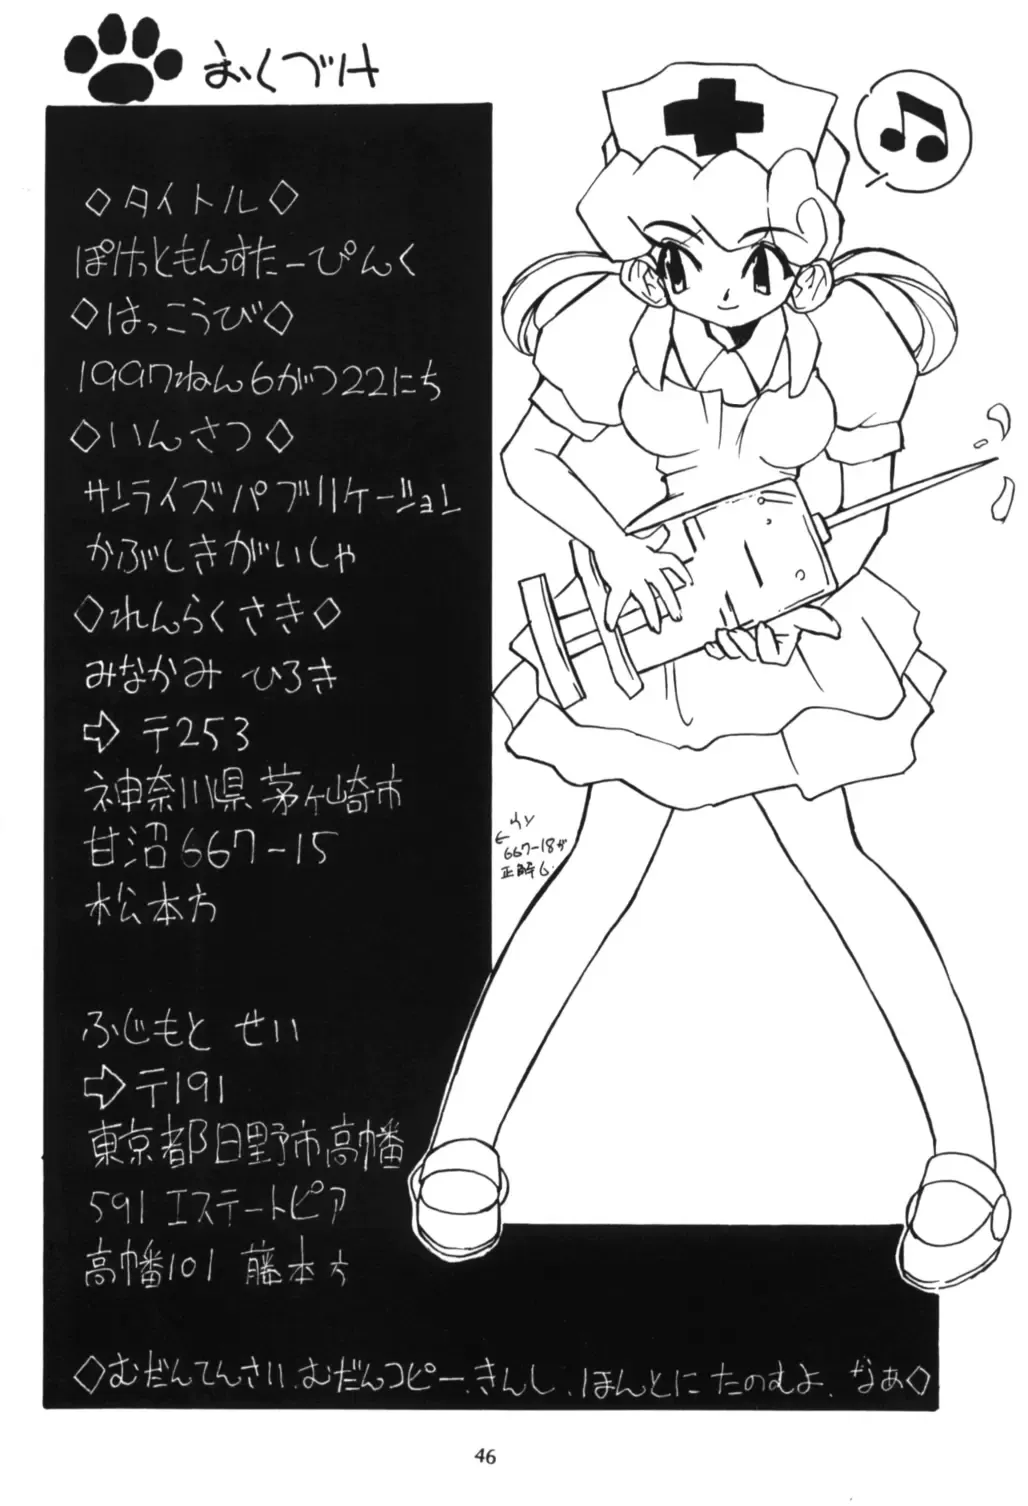 おくづけ
◇タイトル◇
ぽけっともんすたーぴんく
◇はっこうび◇
1997ねん6がつ22にち
◇いんさつ◇
サンライズパブリケーション
かぶしきがいしゃ
◇れんらくさき◇
みなかみ ひろき
⇨ 〒253
神奈川県茅ヶ崎市
甘沼667-15
松本方
←ウソ
667-18が
正解
ふじもと せい
⇨ 〒191
東京都日野市高幡
591 エステートピア
高幡101 藤本方
◇むだんてんさい、むだんコピー、きんし、ほんとに たのむよ、なあ◇
46